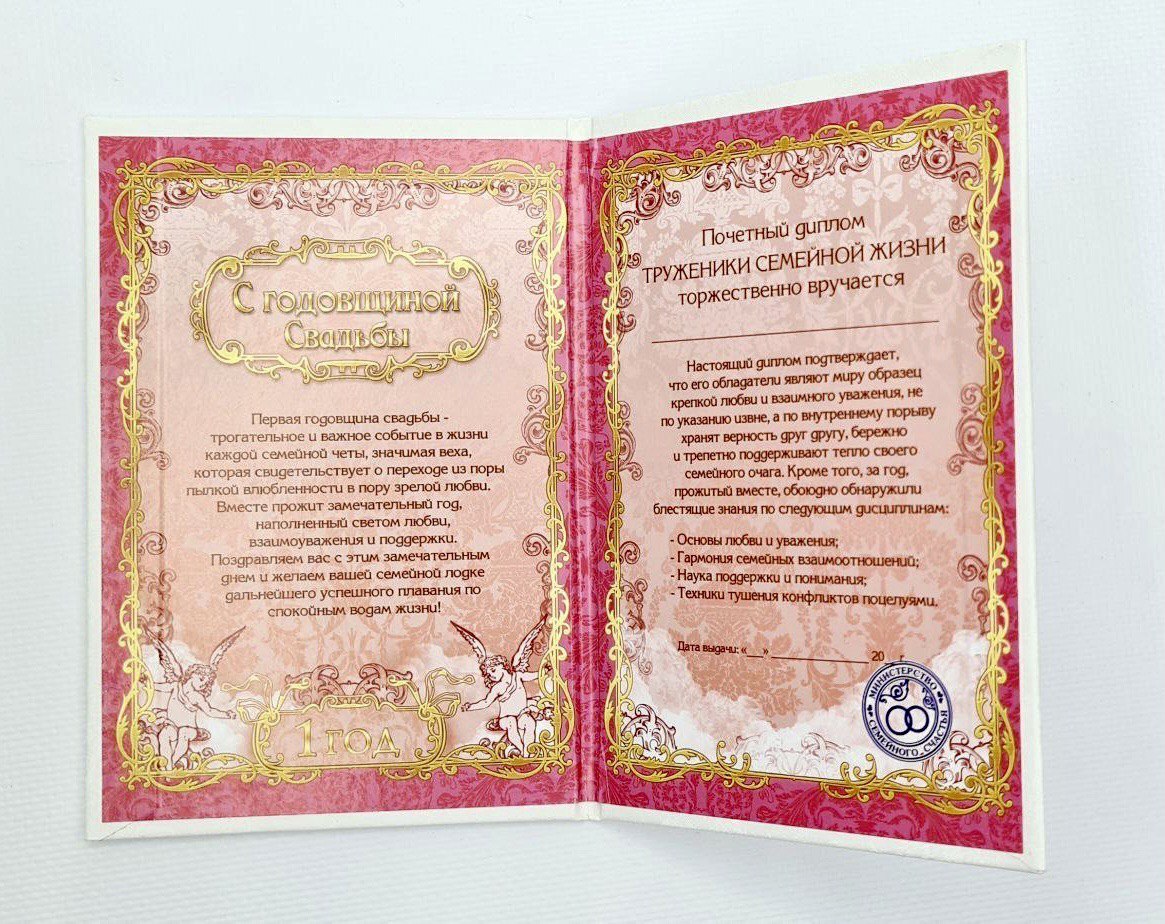 С годовщиной
Свадьбы
Первая годовщина свадьбы -
трогательное и важное событие в жизни
каждой семейной четы, значимая веха,
которая свидетельствует о переходе из поры
пылкой влюбленности в пору зрелой любви.
Вместе прожит замечательный год,
наполненный светом любви,
взаимоуважения и поддержки.
Поздравляем вас с этим замечательным
днем и желаем вашей семейной лодке
дальнейшего успешного плавания по
спокойным водам жизни!
1 год
Почетный диплом
ТРУЖЕНИКИ СЕМЕЙНОЙ ЖИЗНИ
торжественно вручается
Настоящий диплом подтверждает,
что его обладатели являют миру образец
крепкой любви и взаимного уважения, не
по указанию извне, а по внутреннему порыву
хранят верность друг другу, бережно
и трепетно поддерживают тепло своего
семейного очага. Кроме того, за год,
прожитый вместе, обоюдно обнаружили
блестящие знания по следующим дисциплинам:
- Основы любви и уважения;
- Гармония семейных взаимоотношений;
- Наука поддержки и понимания;
- Техники тушения конфликтов поцелуями.
Дата выдачи: «__» ______________ 20__ г.
МИНИСТЕРСТВО
СЕМЕЙНОГО СЧАСТЬЯ